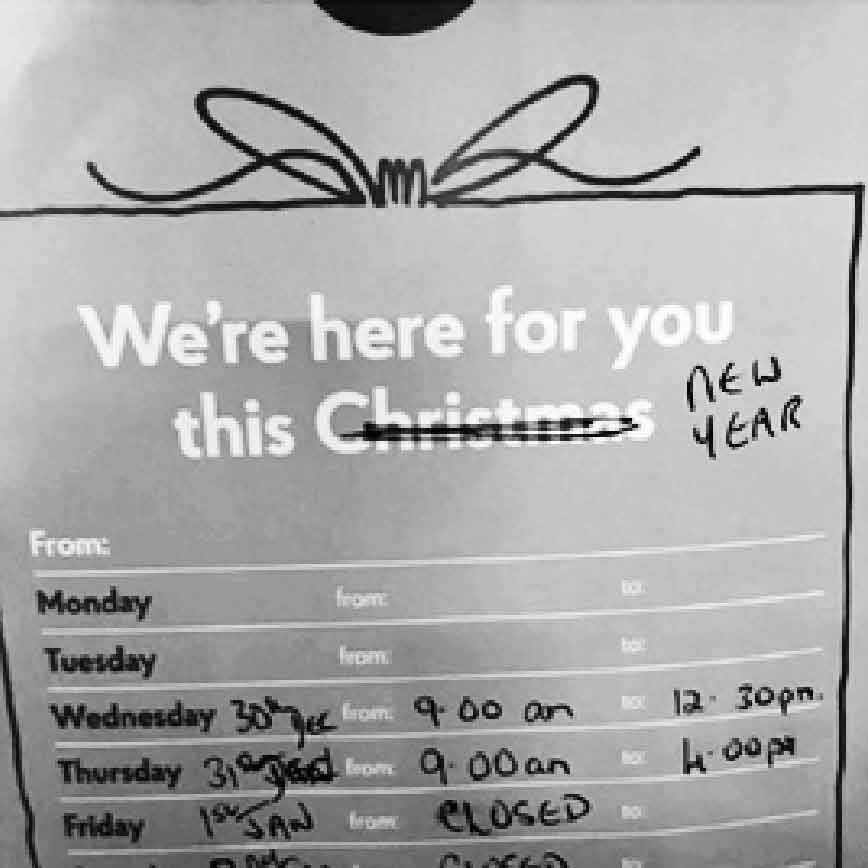 We're here for you
this Christmas NEW
YEAR
From:
Monday from: to:
Tuesday from: to:
Wednesday 30th Dec from: 9.00 am to: 12.30pm.
Thursday 31st from: 9.00am to: 4.00pm
Friday 1st JAN from: CLOSED to:
CLOSED to: